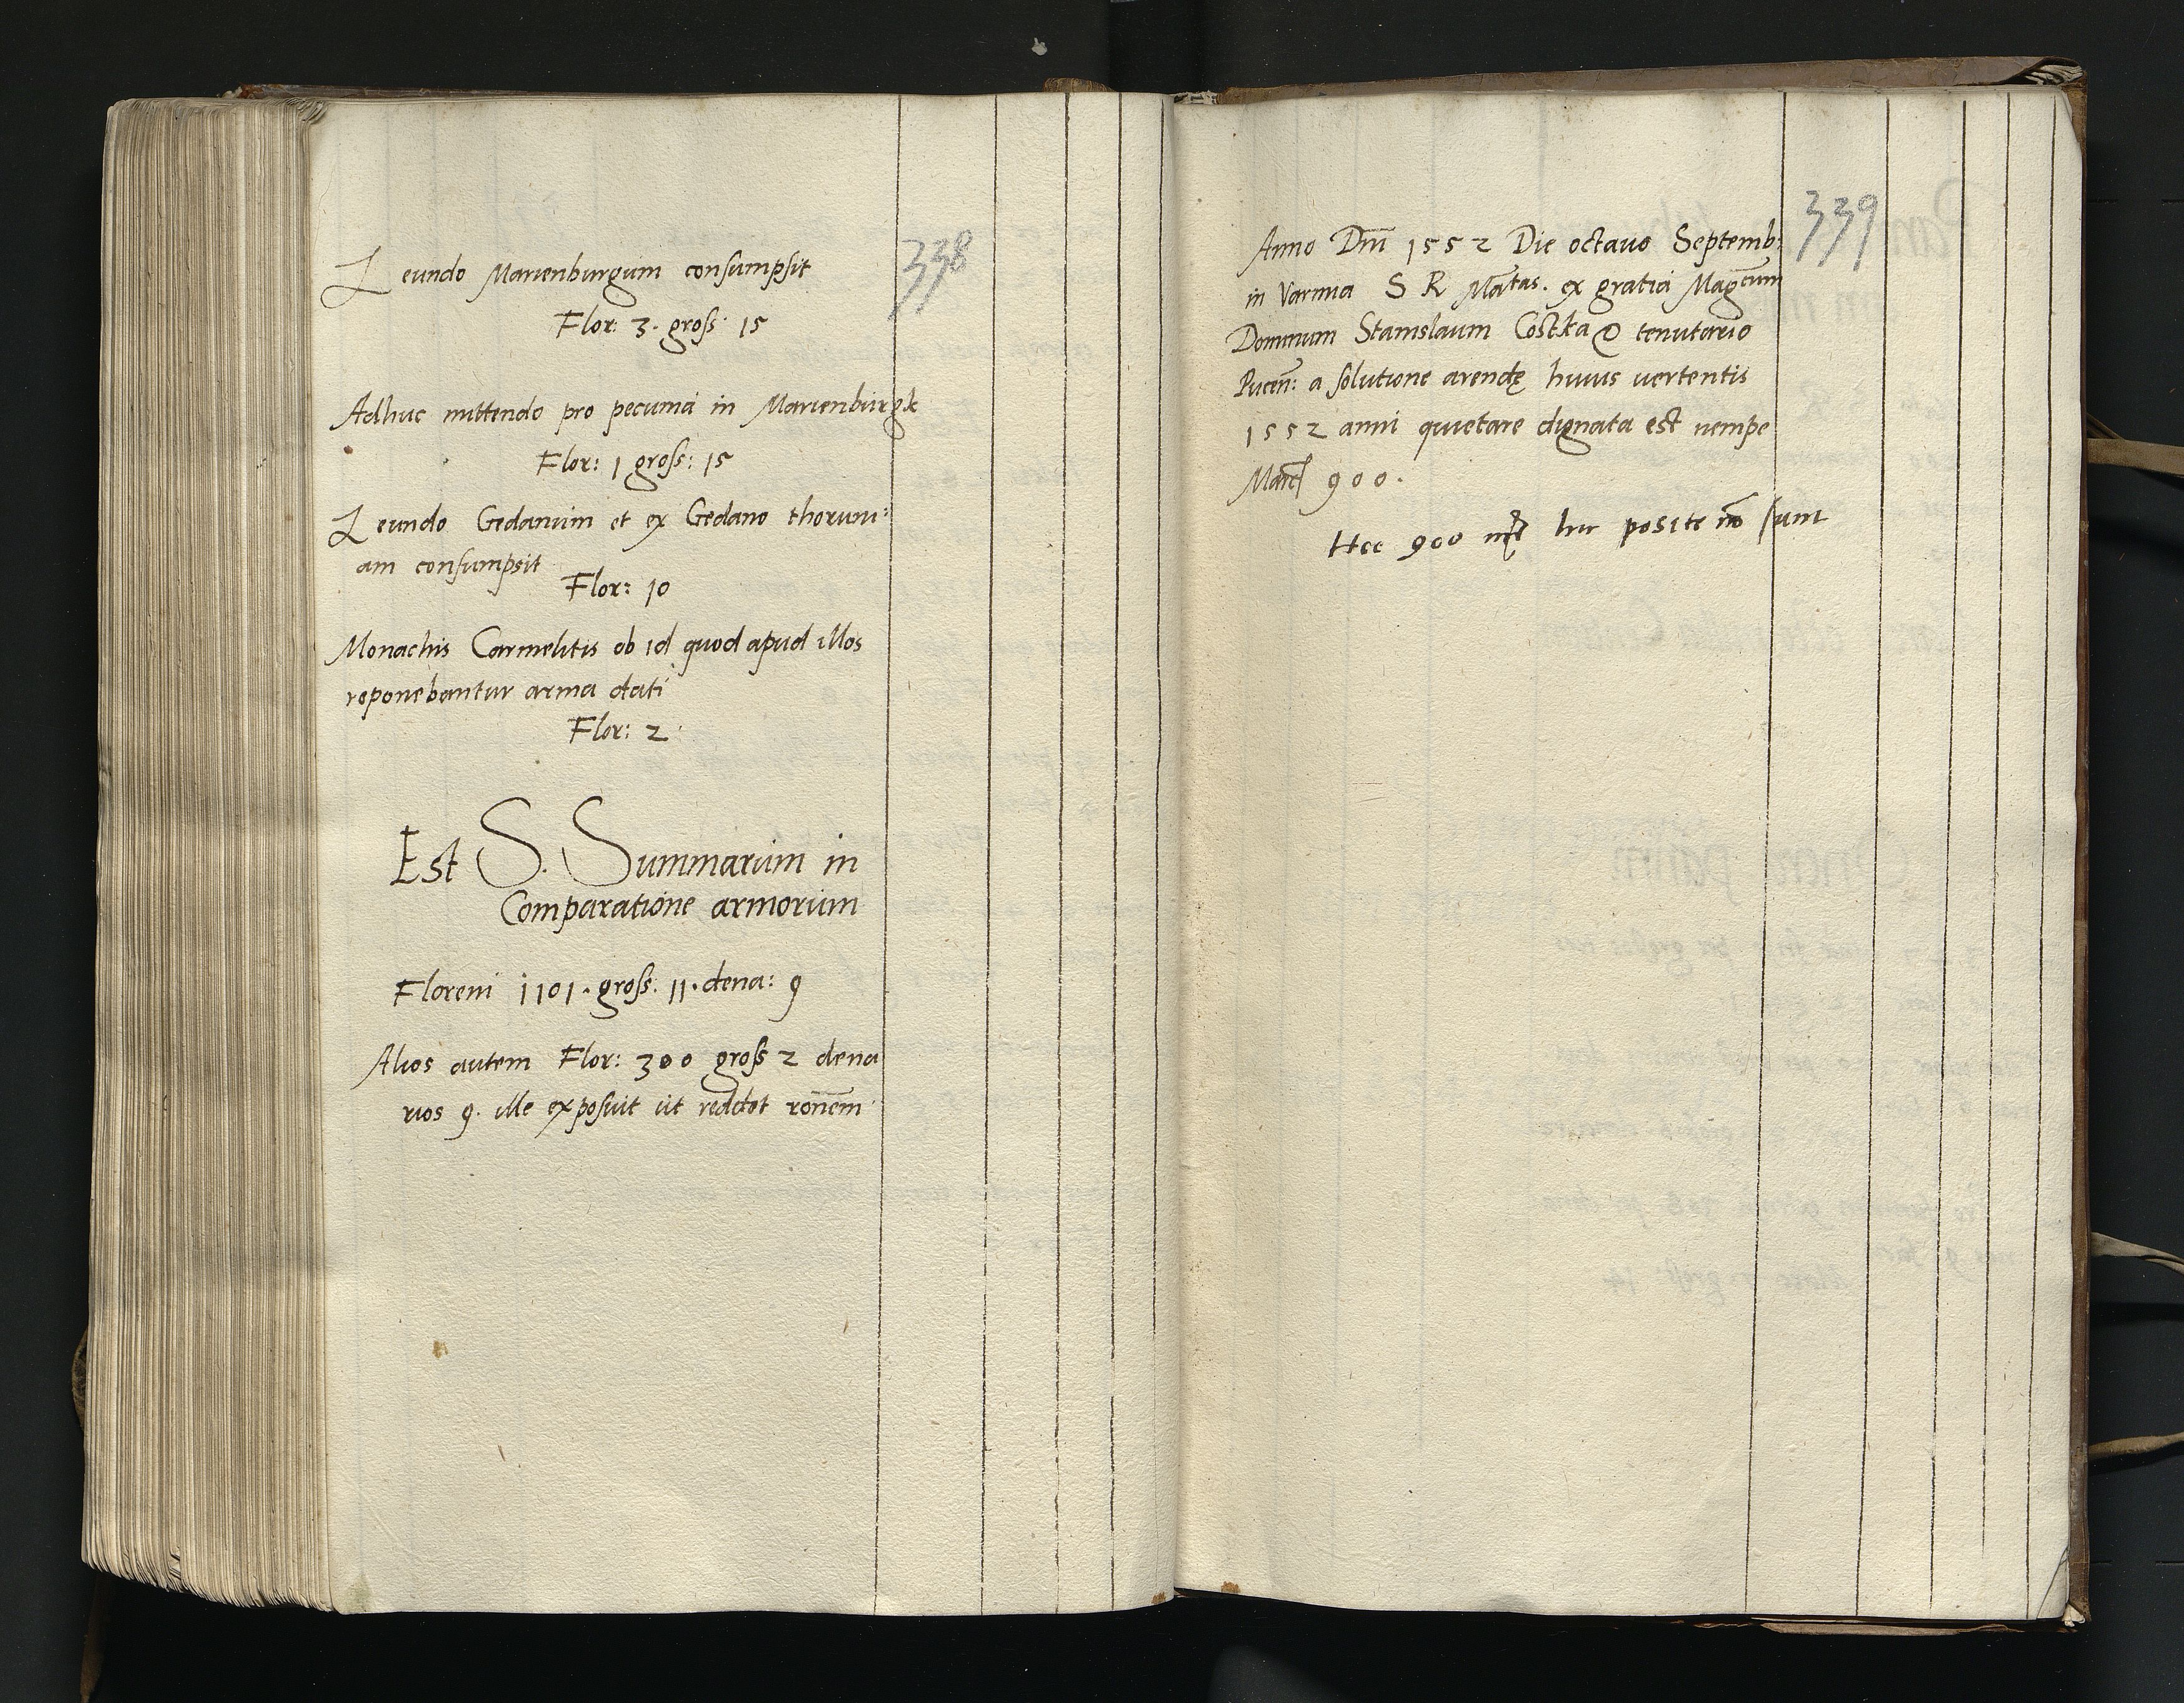 338
Z eundo Marienburgum consumpsit
Flor: 3. gross: 15
Adhuc mittendo pro pecunia in Marienburgk
Flor: 1 gross: 15
Z eundo Gedanum et ex Gedano thoruni-
am consumpsit
Flor: 10
Monachis Carmelitis ob id quod apud illos
reponebantur arma dati
Flor: 2.
Est S. Summarum in
Comparatione armorum
Floreni 1101. gross: 11. dena: 9
Alios autem Flor: 300 gross 2 dena
rios 9. ille exposuit ut reddet ronem
339
Anno Dni 1552 Die octauo Septemb:
in Varmia S R Mtas. ex gratia Magcum
Dominum Stanislaum Costka tenutario
Pucen: a solutione arendę huius uertentis
1552 anni quietare dignata est nempe
Marc 900.
Hec 900 mr hic posite no sunt